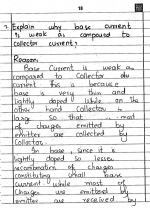 18
7. Explain why base current
is weak as compared to
collector current?
Reason
Base Current is weak as
compared to Collector
current this is because
base is very thin and
lightly doped while on the
other hand Collector is
large so that most
of charges emitted by
emitter are collected by
Collector.
In base, since it is
lightly doped so lesser
recombination of charges
constituting small base
current while most of
Charges are emitted by
emitter are received by